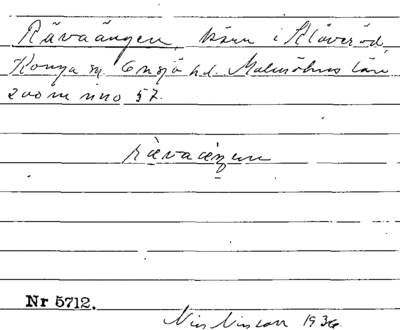 Rävaängen, kärr i Klåveröd,
Konga sn Onsjö hd. Malmöhus län
zoom inno 57.
rävaängen
Nr 5712.
Nils Nilsson 1936